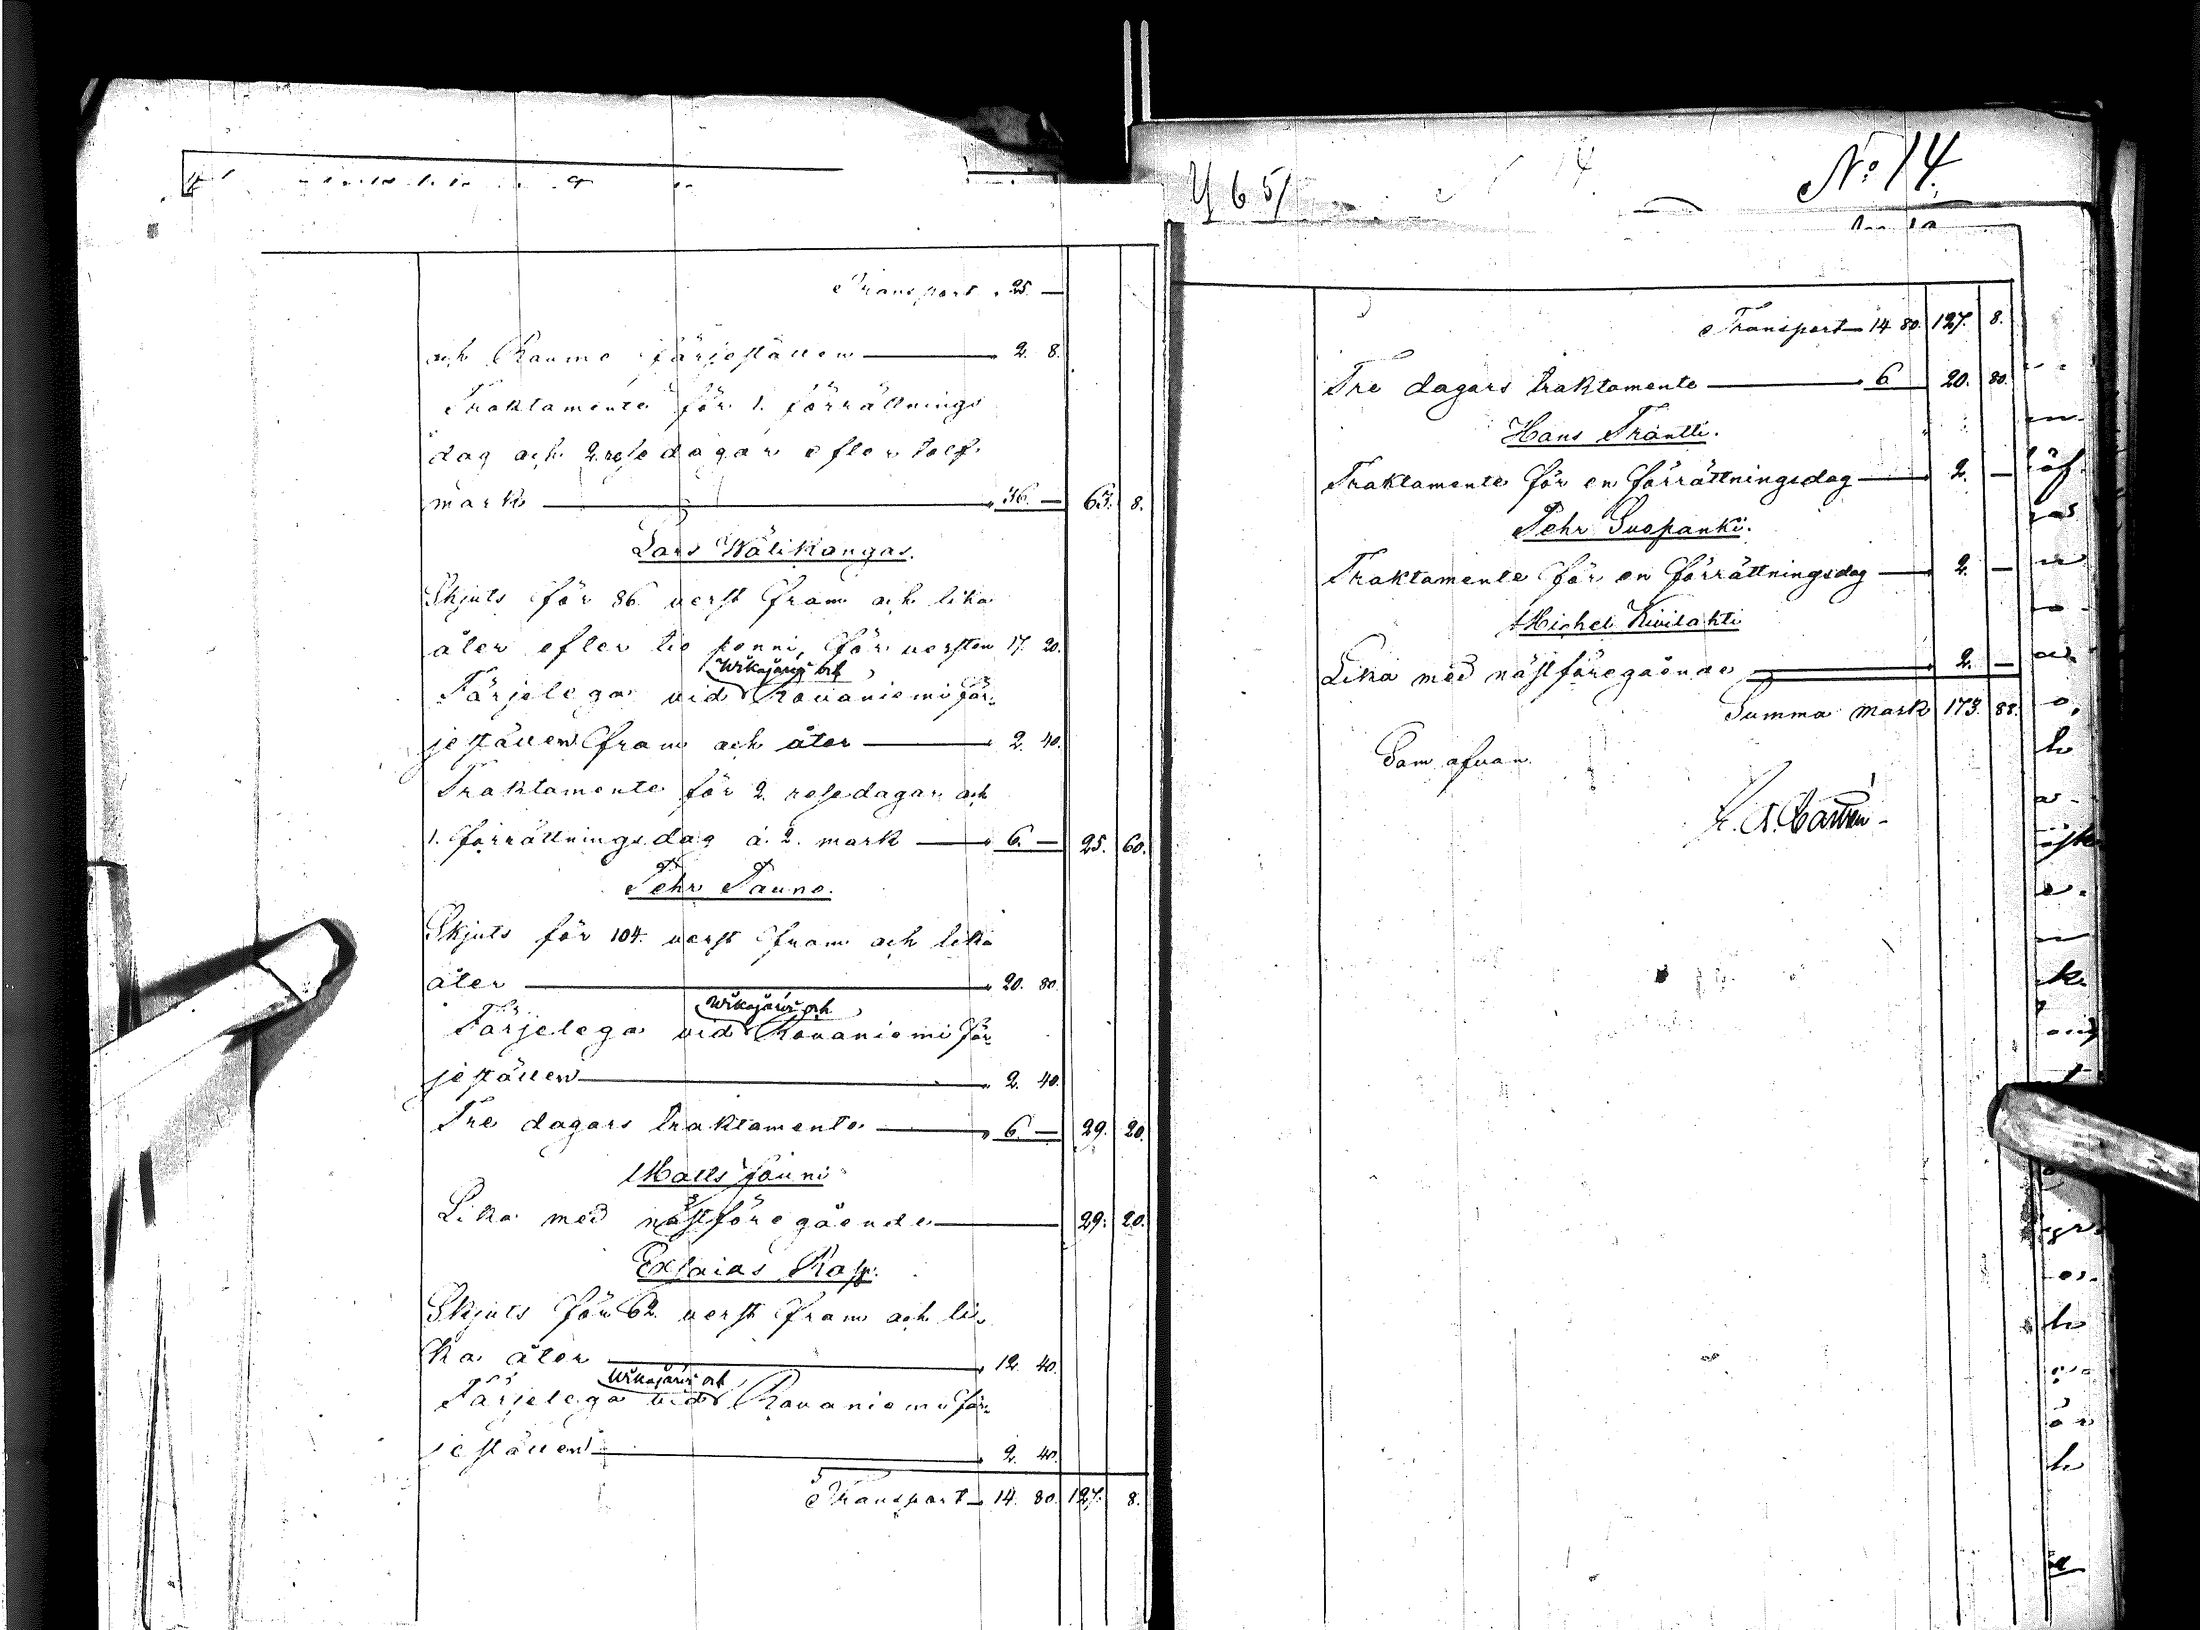 Transport „ 25. —
och Raumo färjeställen — „ 2. 8.
Traktamente för 1. förrättnings
dag och 2 resedagar efter tolf
mark — „ 36. — 63. 8.
Lars Wälikangas.
Skjuts för 86 verst fram och lika
åter efter tio penni för versten 17. 20.
Wikajärvi och
Färjelega vid Rovaniemi fär-
jeställen fram och åter — „ 2. 40.
Traktamente för 2 resedagar och
1. förrättningsdag à 2. mark — „ 6. — 25. 60.
Pehr Pauno.
Skjuts för 104. verst fram och lika
åter — „ 20. 80.
Wikajärvi och
Färjelega vid Rovaniemi fär-
jeställen — „ 2. 40.
Tre dagars traktamente — „ 6. — 29. 20.
Matts Jouni
Lika med nästföregående — 29. 20.
Exsaias Rasp.
Skjuts för 62. verst fram och li-
ka åter — „ 12. 40.
Wikajärvi och
Färjelega vid Rovaniemi fär-
jeställen — „ 2. 40.
Transport — 14. 80. 127. 8.
No 14.
U 651
Transport — 14 80. 127. 8.
Tre dagars traktamente — „ 6 20. 80.
Hans Fräntti.
Traktamente för en förrättningsdag — 2. —
Pehr Suopanki.
Traktamente för en förrättningsdag — 2. —
Michel Kivilahti
Lika med nästföregående — 2. —
Summa mark 173. 88.
Som ofvan.